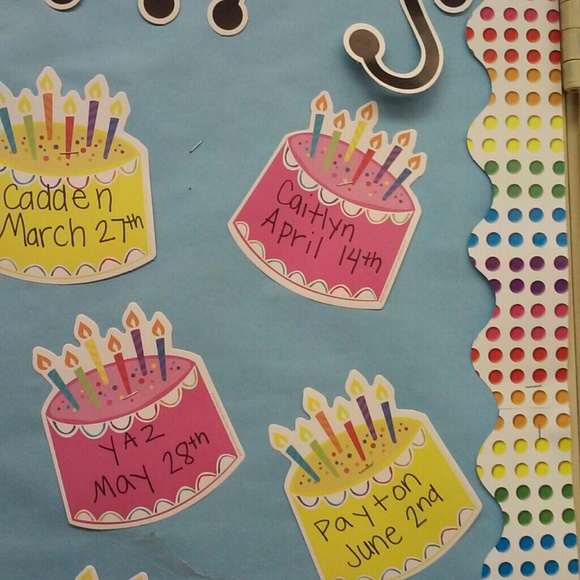 Cadden
March 27th
Caitlyn
April 14th
YAZ
MAY 28th
Payton
June 2nd